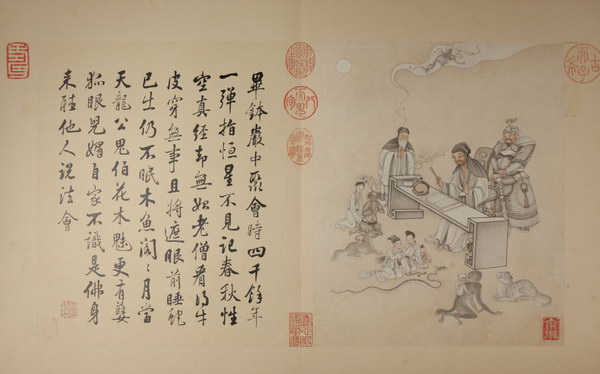 畢鉢巖中聚會時四千餘年
一彈指恒星不見記春秋性
空真經却無如老僧看得牛
皮穿無事且將遮眼前睡蛇
已出仍不眠木魚閣〻月當
天龍公鬼伯花木魅更有
狐眼兒媚自家不識是佛身
來聽他人說法會